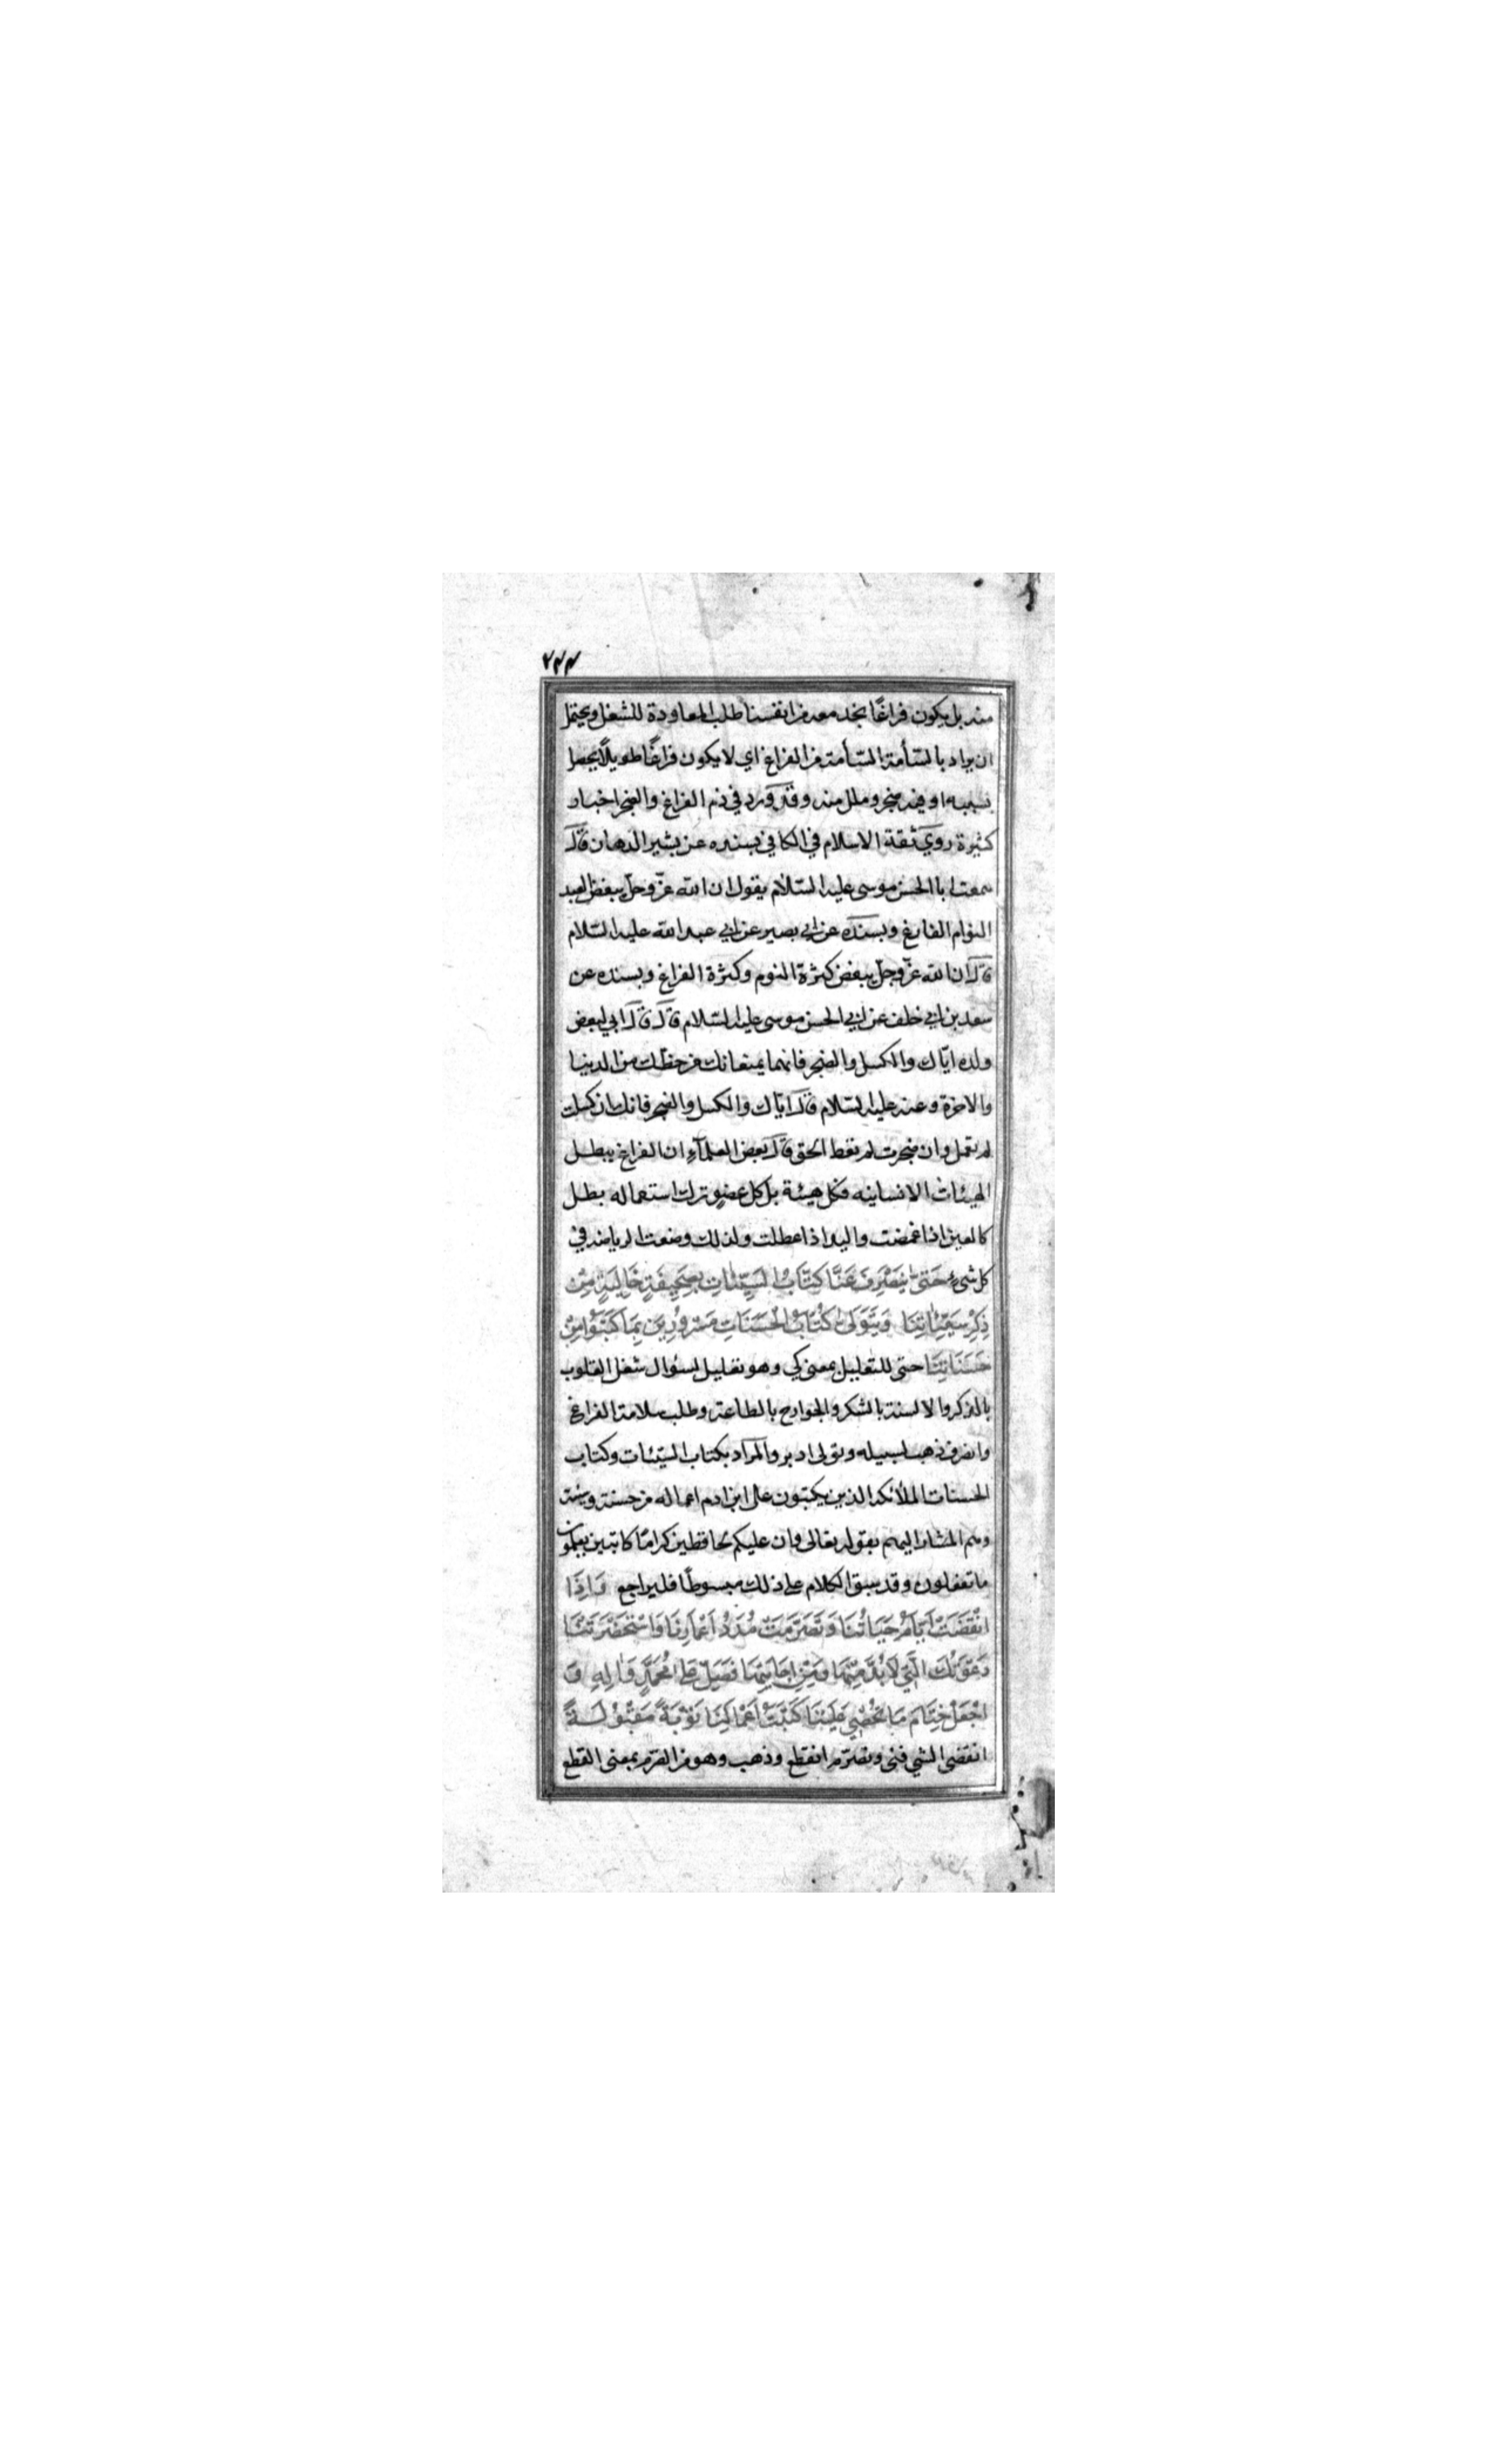 ٢٤٤
منه بل يكون فراغًا نجد معه من انفسنا طلب المعاودة للشغل ويحتمل
ان يراد بالسّأمة السّأمة من الفراغ اي لا يكون فراغًا طويلًا يحصل
بسببه او فيه ضجر وملل منه وقد ورد في ذم الفراغ والضجر اخبار
كثيرة روى ثقة الاسلام في الكافي بسنده عن بشير الدهان قال
سمعت ابا الحسن موسى عليه السّلام يقول ان الله عزّ وجلّ يبغض العبد
النوام الفارغ وبسنده عن ابي بصير عن ابي عبد الله عليه السّلام
قال ان الله عزّ وجلّ يبغض كثرة النوم وكثرة الفراغ وبسنده عن
سعد بن ابي خلف عن ابي الحسن موسى عليه السّلام قال قال ابي لبعض
ولده ايّاك والكسل والضجر فانهما يمنعانك من حظّك من الدنيا
والاخرة وعنه عليه السّلام قال ايّاك والكسل والضجر فانك ان كسلت
لم تعمل وان ضجرت لم تعط الحق قال بعض العلمآء ان الفراغ يبطل
الهيئات الانسانيه فكل هيئة بل كل عضو ترك استعماله بطل
كالعين اذا غمضت واليد اذا عطلت ولذلك وضعت الرياضه في
كل شيء حَتّى يَنْصَرِفَ عَنَّا كُتّابُ السَّيِّئاتِ بِصَحِيفَةٍ خَالِيَةٍ مِنْ
ذِكْرِ سَيِّئَاتِنَا وَيَتَوَلّى كُتّابُ الْحَسَنَاتِ مَسْرُورِينَ بِمَا كَتَبُوا مِنْ
حَسَنَاتِنَا حتى للتعليل بمعنى كي وهو تعليل لسؤال شغل القلوب
بالذكر والالسنة بالشكر والجوارح بالطاعة وطلب سلامة الفراغ
وانصرف ذهب لسبيله وتولى ادبر والمراد بكتاب السيّئات وكتاب
الحسنات الملائكة الذين يكتبون على ابن ادم اعماله من حسنة وسيئة
وهم المشار اليهم بقوله تعالى وان عليكم لحافظين كرامًا كاتبين يعلمون
ما تفعلون وقد سبق الكلام على ذلك مبسوطًا فليراجع وَاِذَا
انْقَضَتْ اَيّامُ حَيَاتِنَا وَتَصَرَّمَتْ مُدَدُ اَعْمَارِنَا وَاسْتَحْضَرَتْنَا
دَعْوَتُكَ الَّتِي لَابُدَّ مِنْهَا وَمِنْ اِجَابَتِهَا فَصَلِّ عَلى مُحَمَّدٍ وَالِهِ وَ
اجْعَلْ خِتَامَ مَا تُحْصِي عَلَيْنَا كَتَبَةُ اَعْمَالِنَا تَوْبَةً مَقْبُولَةً
انقضى الشي فنى وتصرّم انقطع وذهب وهو من الصرم بمعنى القطع